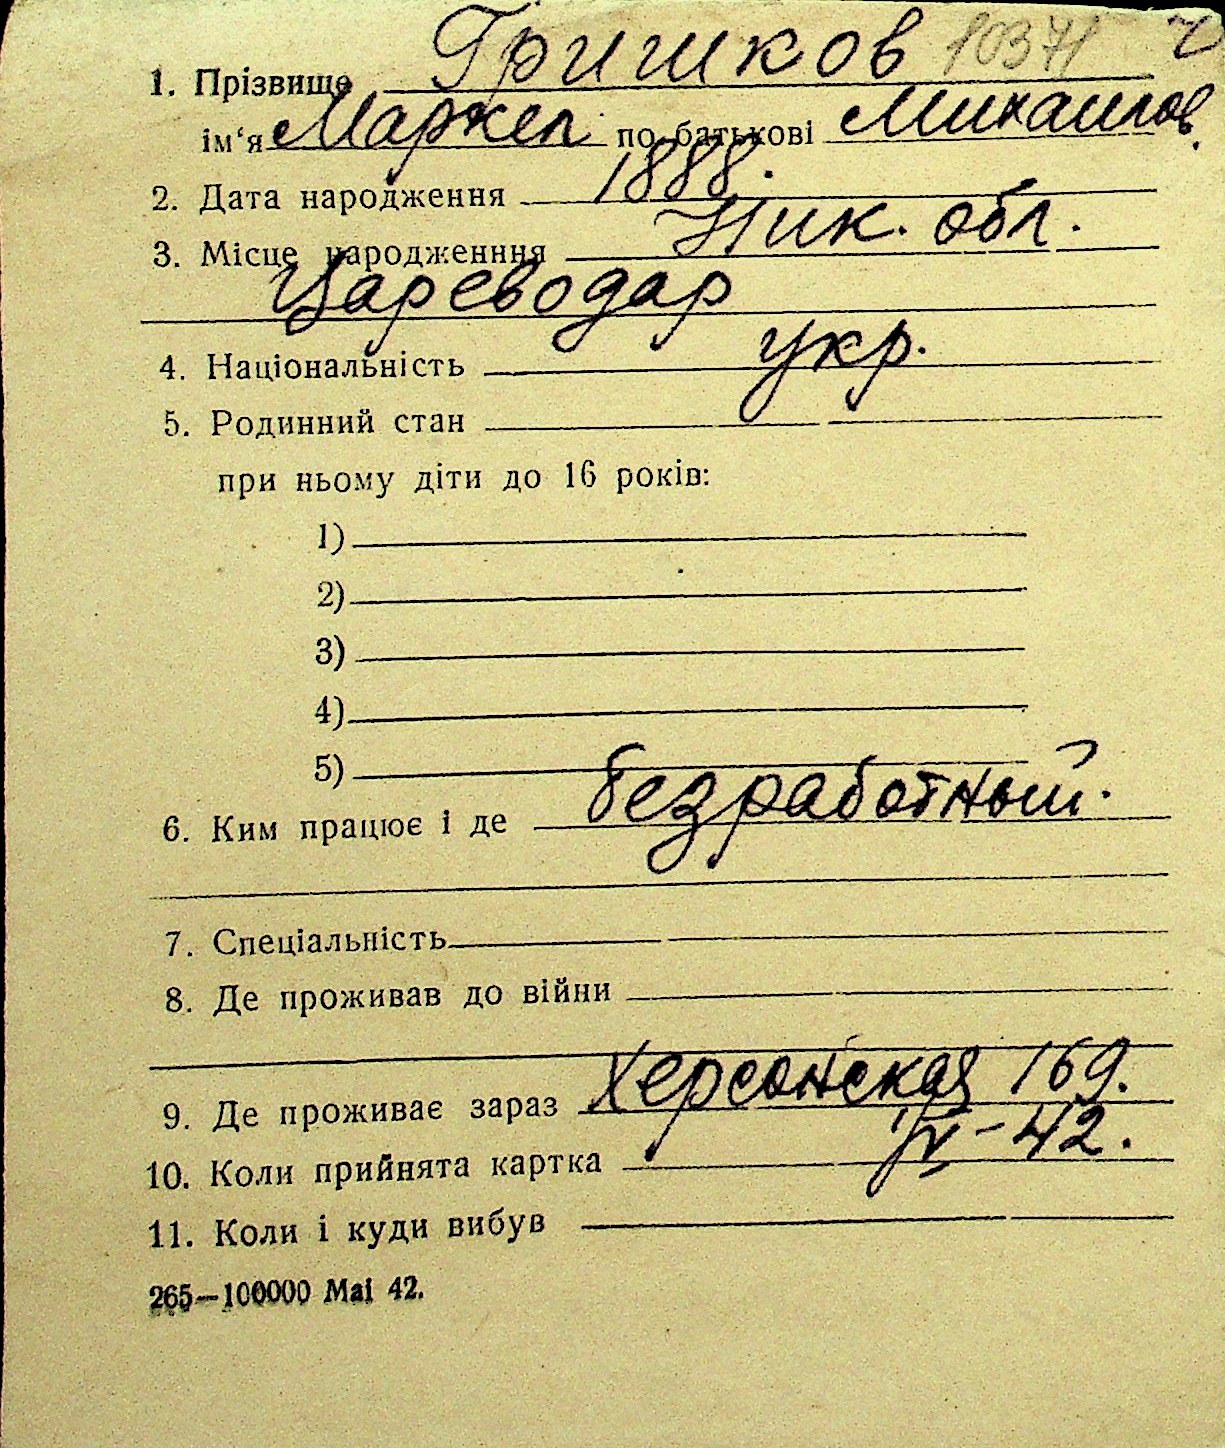 1. Прізвище Гришков 10371
ім‘я Маркел по-батькові Михаилов.
2. Дата народження 1888.
3. Місце народженння Ник. обл.
Цареводар
4. Національність укр.
5. Родинний стан
при ньому діти до 16 років:
1)
2)
3)
4)
5)
6. Ким працює і де безработный.
7. Спеціальність
8. Де проживав до війни
9. Де проживає зараз Херсонская 169.
10. Коли прийнята картка IV-42.
11. Коли і куди вибув
265—100000 Mai 42.